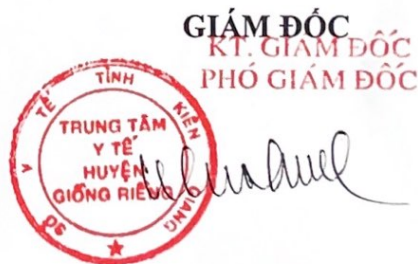 GIÁM ĐỐC
KT. GIÁM ĐỐC
PHÓ GIÁM ĐỐC
SỞ Y TẾ TỈNH KIÊN GIANG
TRUNG TÂM
Y TẾ
HUYỆN
GIỒNG RIỀNG